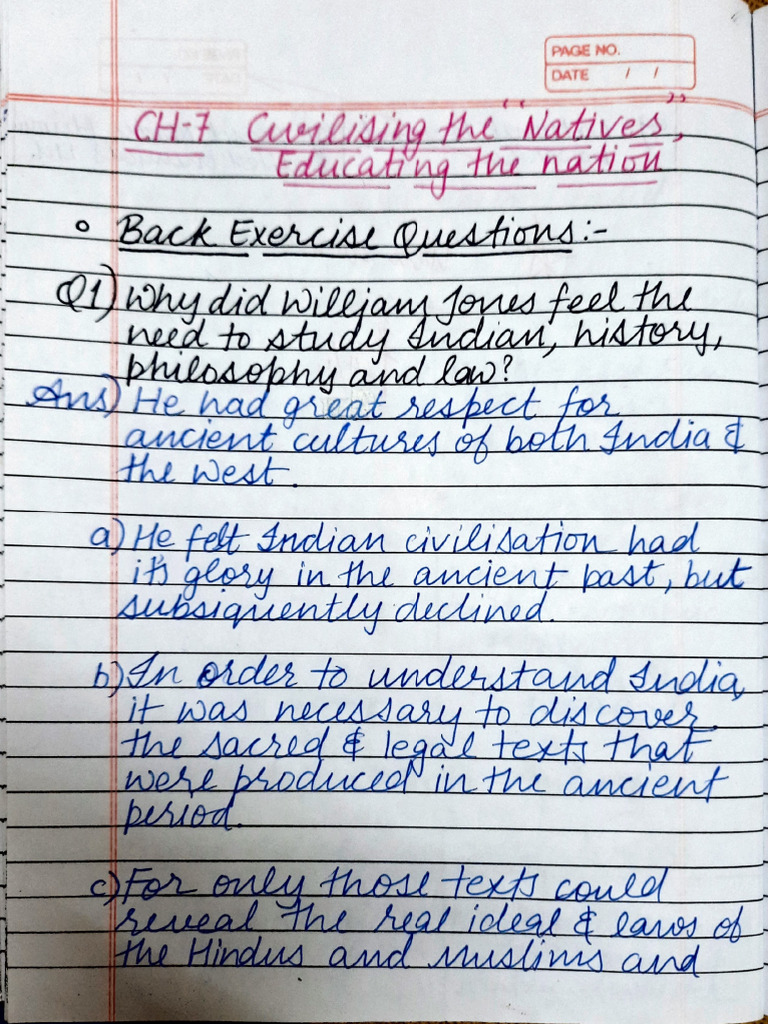 PAGE NO.
DATE / /
CH-7 Civilising the "Natives",
Educating the nation
Back Exercise Questions:-
Q1) Why did William Jones feel the
need to study Indian, history,
philosophy and law?
Ans) He had great respect for
ancient cultures of both India &
the West.
a) He felt Indian civilisation had
it's glory in the ancient past, but
subsiquently declined.
b) In order to understand India,
it was necessary to discover
the sacred & legal texts that
were produced in the ancient
period.
c) For only those texts could
reveal the real ideal & laws of
the Hindus and Muslims and